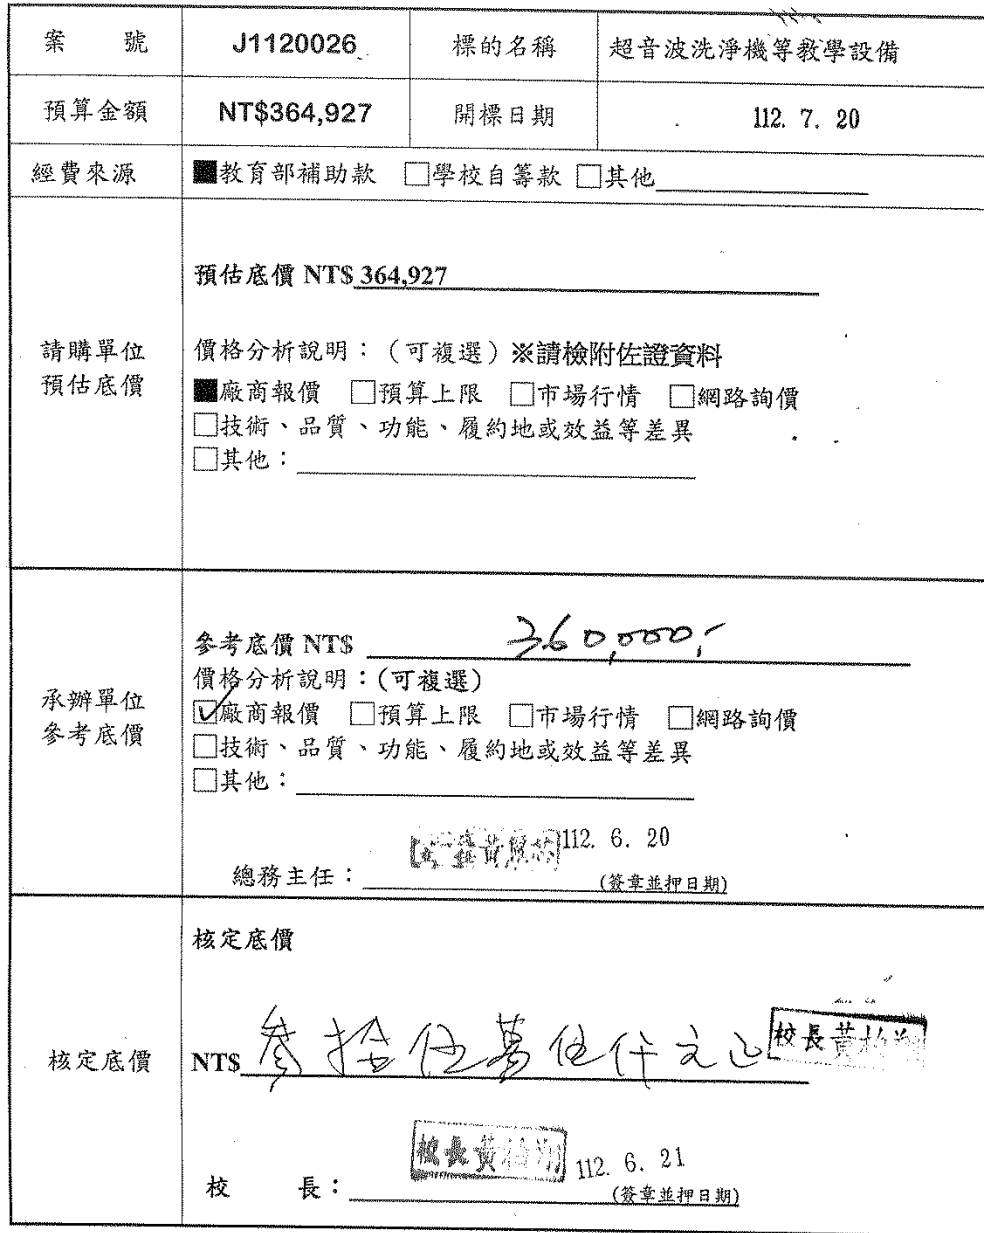 案 號 J1120026 標的名稱 超音波洗淨機等教學設備
預算金額 NT$364,927 開標日期 112. 7. 20
經費來源 ■教育部補助款 □學校自籌款 □其他
請購單位
預估底價
預估底價 NT$ 364,927
價格分析說明：（可複選）※請檢附佐證資料
■廠商報價 □預算上限 □市場行情 □網路詢價
□技術、品質、功能、履約地或效益等差異
□其他：
承辦單位
參考底價
參考底價 NT$ 360,000,-
價格分析說明：(可複選)
☑廠商報價 □預算上限 □市場行情 □網路詢價
□技術、品質、功能、履約地或效益等差異
□其他：
112. 6. 20
總務主任： (簽章並押日期)
核定底價
核定底價
NT$ 參拾伍萬伍仟元正 校長黃柏翔
校長黃柏翔 112. 6. 21
校 長： (簽章並押日期)